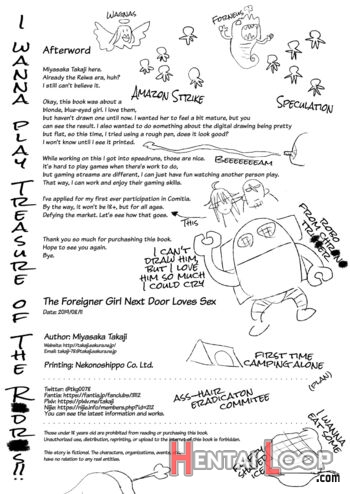 I WANNA PLAY TREASURE OF THE R
WAGNAS
FORNEUS
Afterword
Miyasaka Takaji here.
Already the Reiwa era, huh?
I still can't believe it.
AMAZON STRIKE
SPECULATION
Okay, this book was about a
blonde, blue-eyed girl. I love them,
but haven't drawn one until now. I wanted her to feel a bit mature, but you
can see the result. I also wanted to do something about the digital drawing being pretty
but flat, so this time, I tried using a rough pen, does it look good?
I won't know until I see it printed.
BEEEEEEEAM
While working on this I got into speedruns, those are nice.
It's hard to play games when there's work to do,
but gaming streams are different, I can just have fun watching another person play.
That way, I can work and enjoy their gaming skills.
I've applied for my first ever participation in Comitia.
By the way, it won't be 18+, but for all ages.
Defying the market. Let's see how that goes.
THIS
ROBO
FROM
Thank you so much for purchasing this book.
Hope to see you again.
Bye.
I CAN'T
DRAW HIM,
BUT I LOVE
HIM SO MUCH
I COULD CRY
The Foreigner Girl Next Door Loves Sex
Date: 2019/08/11
Author: Miyasaka Takaji
Website: http://takaji.sakura.ne.jp
Email: takaji-78@takaji.sakura.ne.jp
Printing: Nekonoshippo Co. Ltd.
FIRST TIME
CAMPING ALONE
(PLAN)
Twitter: @tkg0078
Fantia: https://fantia.jp/fanclubs/3112
Pixiv: https://pixiv.me/takaji
Nijie: https://nijie.info/members.php?id=212
You can see the latest information and works.
ASS-HAIR
ERADICATON
COMMITEE
I WANNA
EAT SOME
SHAVED
ICE
Those under 18 years old are prohibited from reading or purchasing this book.
Unauthorized use, distribution, reprinting, or upload to the internet of this book is forbidden.
This story is fictional. The characters, organizations, events,
have no relation to any real entities.
HENTAI LOOP
.com